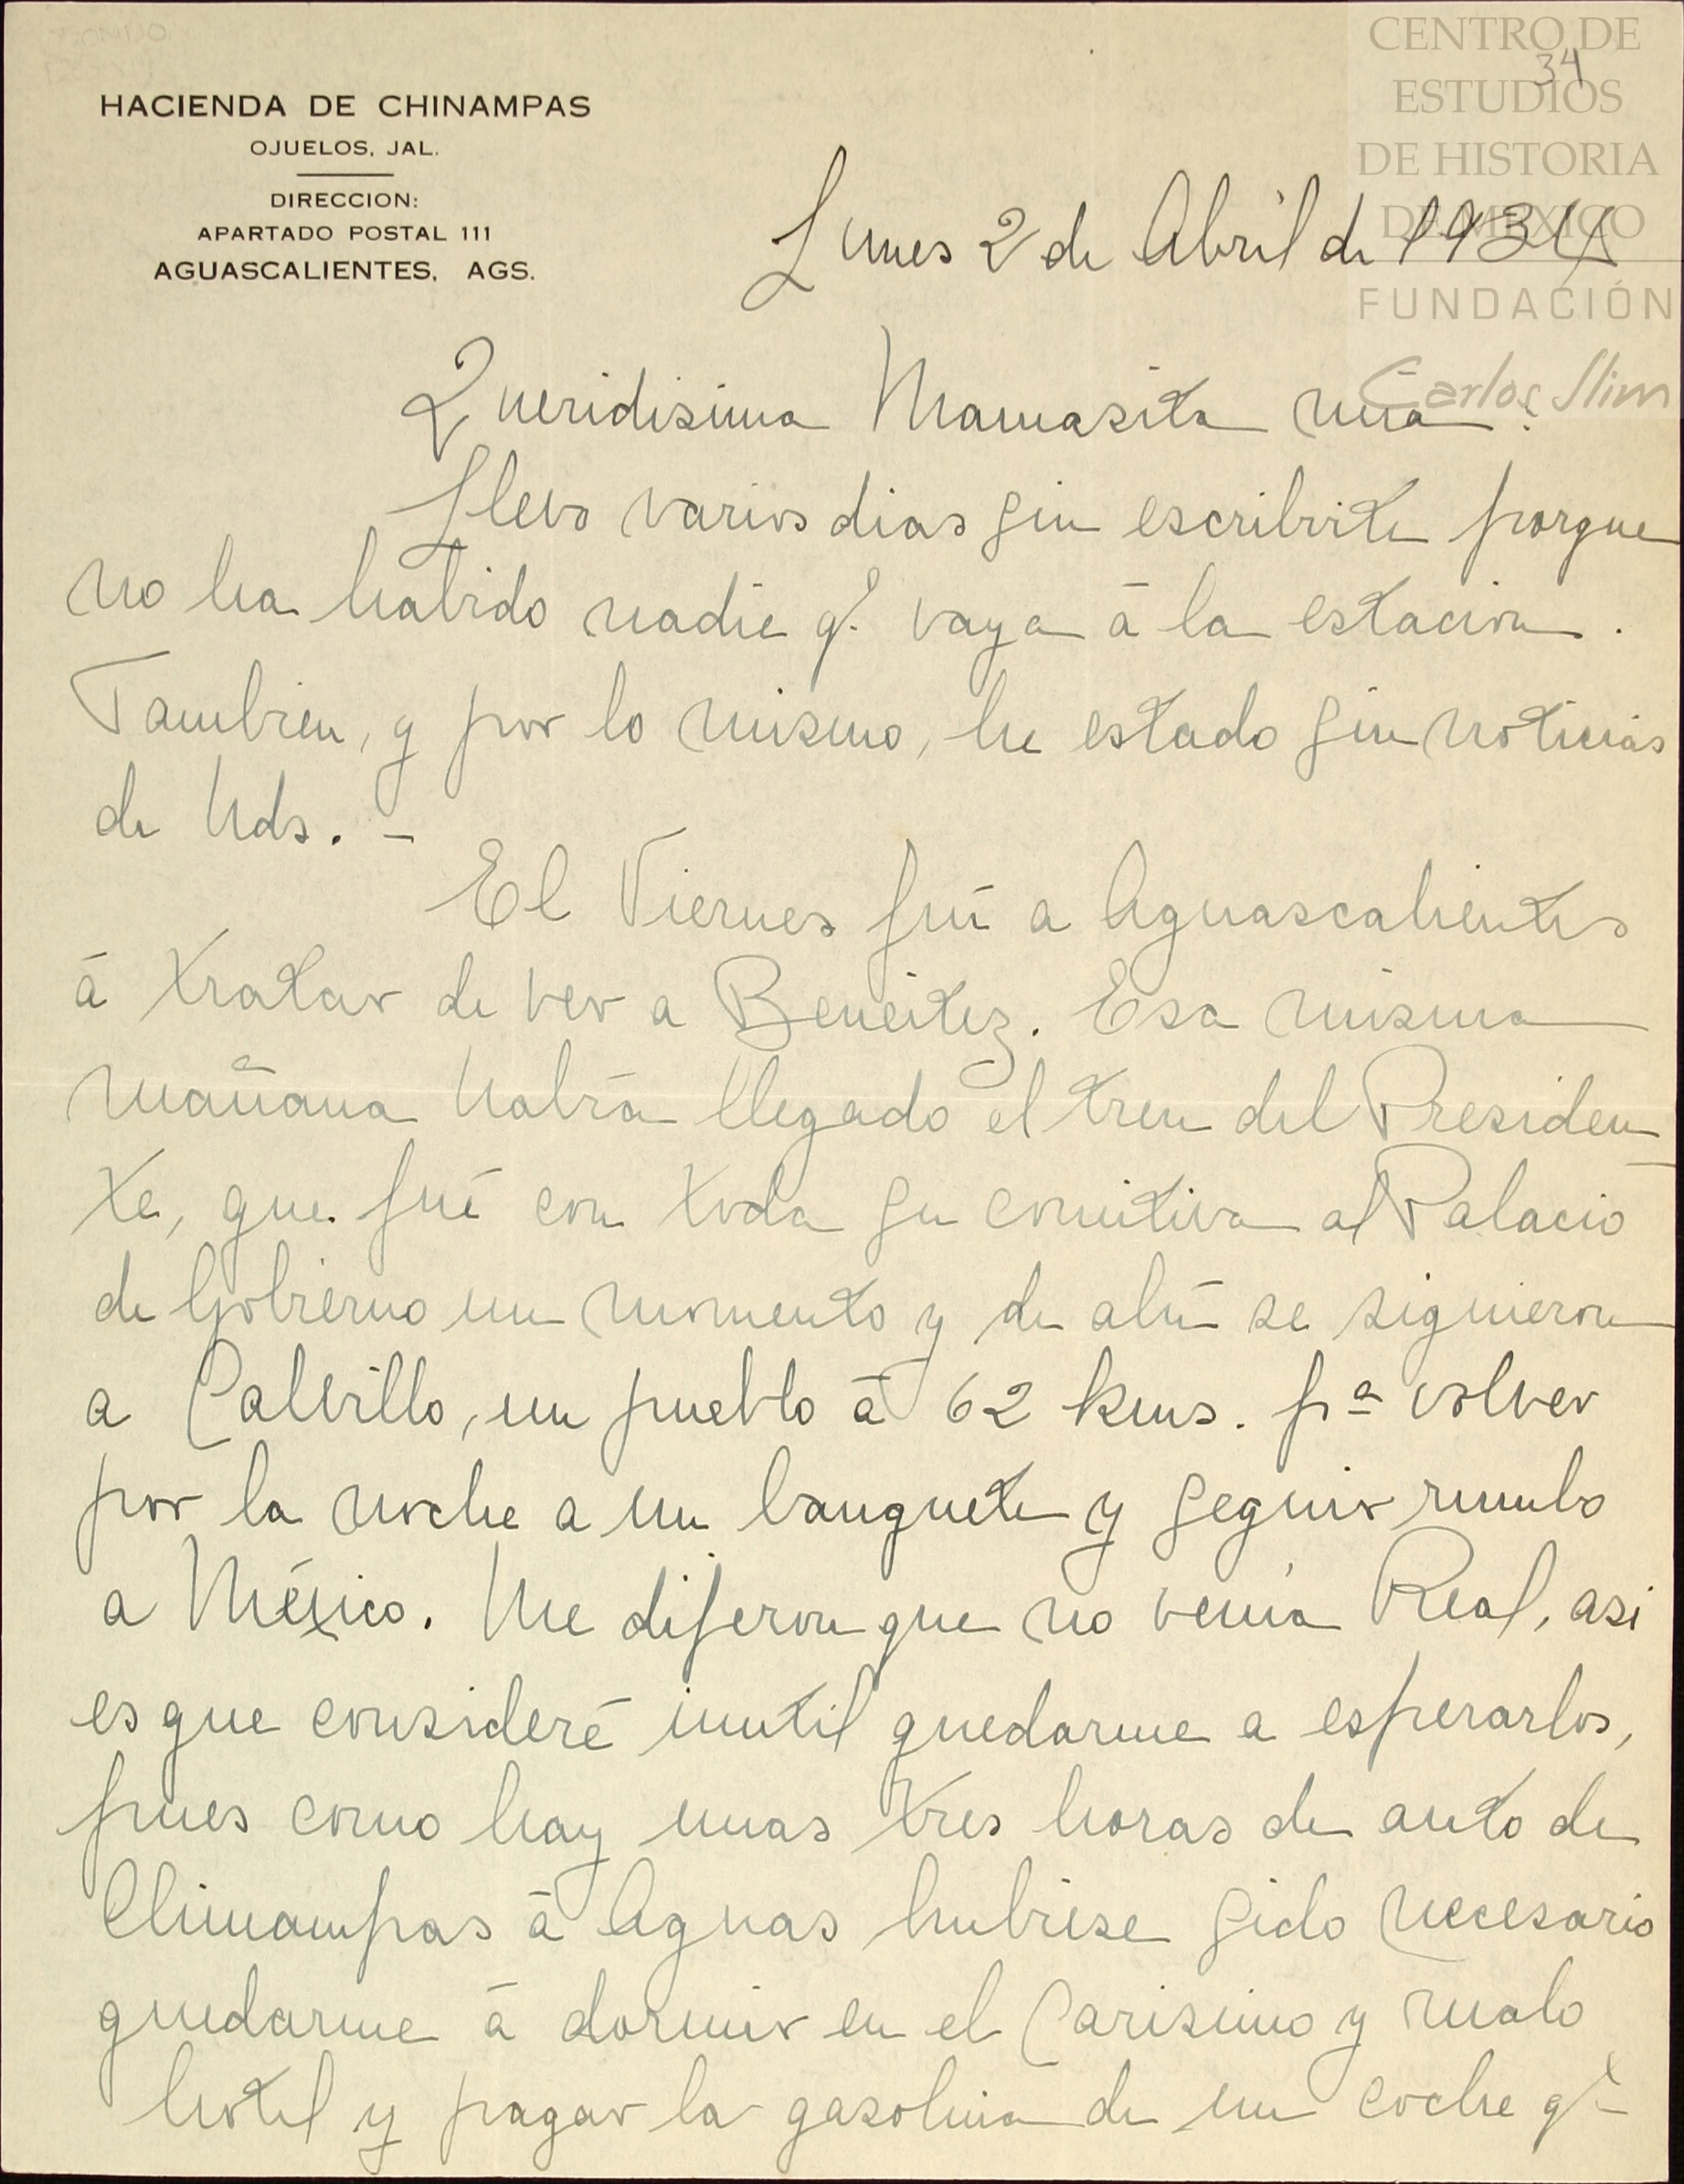 HACIENDA DE CHINAMPAS
OJUELOS, JAL.
DIRECCION:
APARTADO POSTAL 111
AGUASCALIENTES, AGS.
CENTRO DE
ESTUDIOS
DE HISTORIA
DE MEXICO
FUNDACIÓN
Carlos Slim
34
Lunes 2 de Abril de 1934
Queridisima Mamasita mia:
Llevo varios dias sin escribirte porque
no ha habido nadie q.e vaya á la estacion.
Tambien, y por lo mismo, he estado sin noticias
de Uds. -
El Viernes fuí a Aguascalientes
á tratar de ver a Beneitez. Esa misma
mañana había llegado el tren del Presiden
te, que fué con toda su comitiva al Palacio
de Gobierno un momento y de ahí se siguieron
a Calvillo, un pueblo á 62 kms. pª volver
por la noche a un banquete y seguir rumbo
a México. Me dijeron que no venía Real, asi
es que consideré inutil quedarme a esperarlos,
pues como hay unas tres horas de auto de
Chinampas á Aguas hubiese sido necesario
quedarme á dormir en el carisimo y malo
hotel y pagar la gasolina de un coche q.e